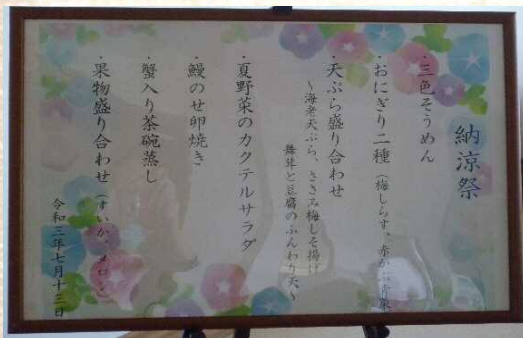 納涼祭
・三色そうめん
・おにぎり二種（梅しらす、赤かぶ青菜）
・天ぷら盛り合わせ
～海老天ぷら、ささみ梅しそ揚げ
舞茸と豆腐のふんわり天～
・夏野菜のカクテルサラダ
・鰻のせ卵焼き
・蟹入り茶碗蒸し
・果物盛り合わせ（すいか、メロン）
令和三年七月十三日